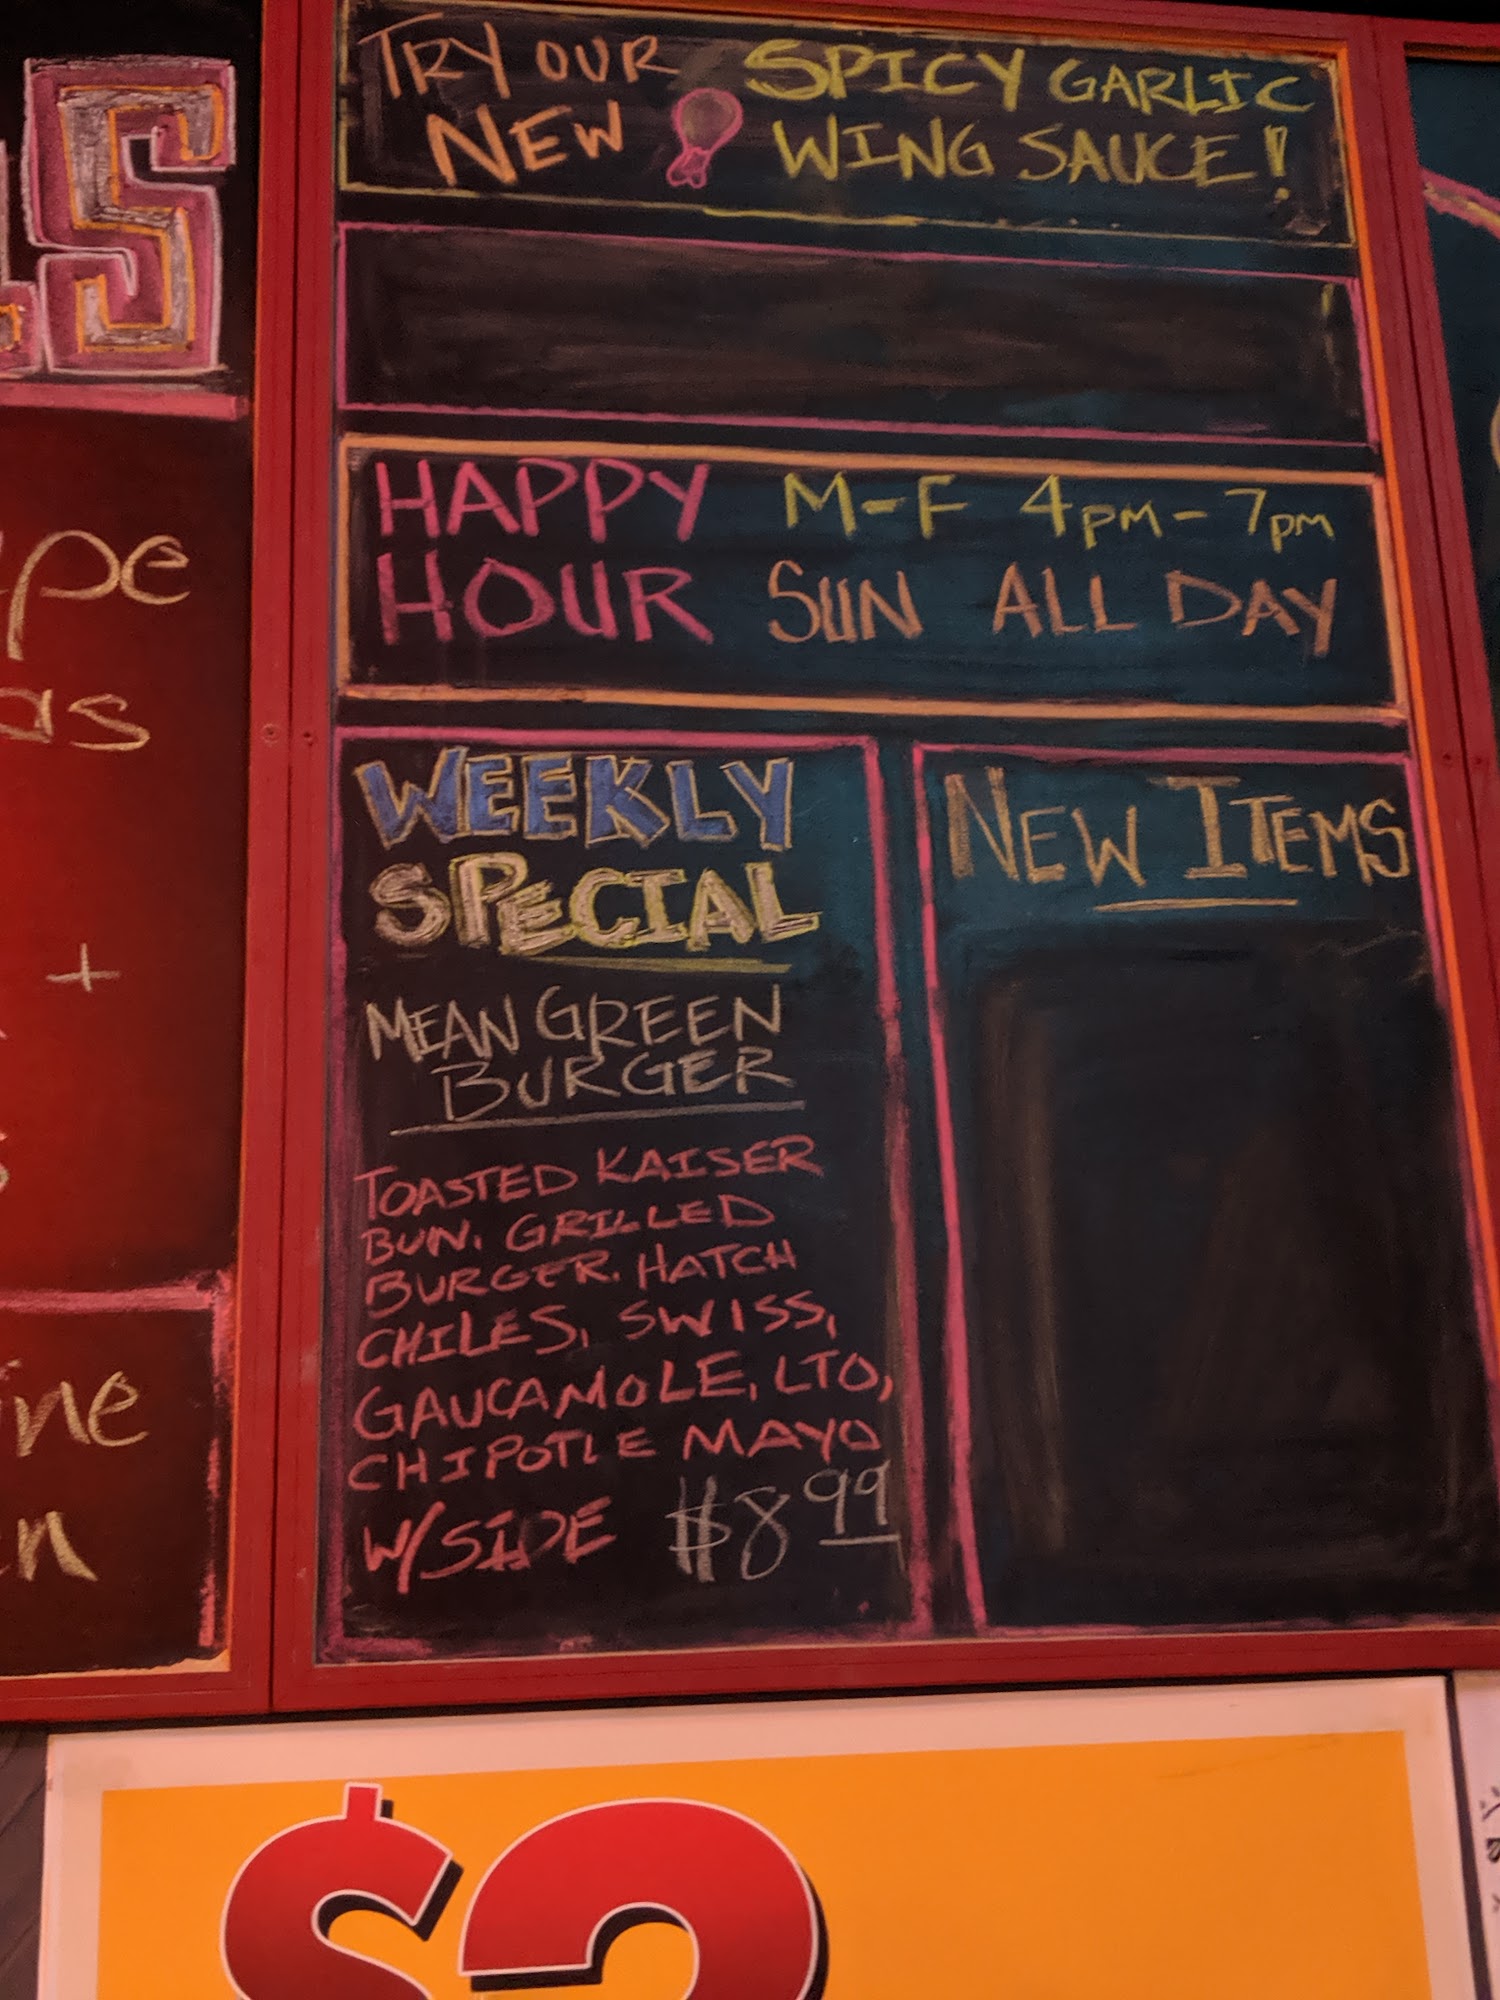 TRY OUR
NEW
SPICY GARLIC
WING SAUCE!
HAPPY
HOUR
M-F 4PM-7PM
SUN ALL DAY
WEEKLY
SPECIAL
MEAN GREEN
BURGER
TOASTED KAISER
BUN. GRILLED
BURGER. HATCH
CHILES, SWISS,
GAUCAMOLE, LTO,
CHIPOTLE MAYO
W/SIDE $8 99
NEW ITEMS
S
pe
as
+
ine
n
$2